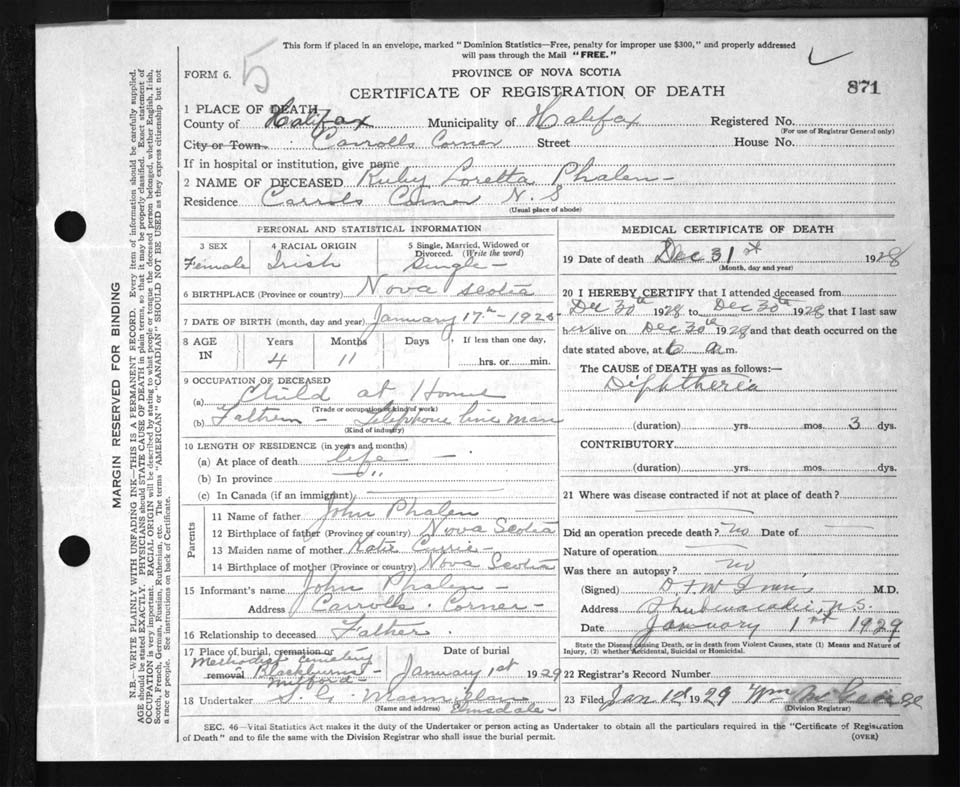 This form if placed in an envelope, marked "Dominion Statistics—Free, penalty for improper use $300," and properly addressed
will pass through the Mail "FREE."
FORM 6. 5
PROVINCE OF NOVA SCOTIA
CERTIFICATE OF REGISTRATION OF DEATH 871
1 PLACE OF DEATH
County of Halifax Municipality of Halifax Registered No.
(For use of Registrar General only)
City or Town. Carrolls Corner Street House No.
If in hospital or institution, give name
2 NAME OF DECEASED Ruby Loretta Phalen
Residence Carrols Corner N.S
(Usual place of abode)
PERSONAL AND STATISTICAL INFORMATION
3 SEX 4 RACIAL ORIGIN 5 Single, Married, Widowed or Divorced. (Write the word)
Female Irish Single
6 BIRTHPLACE (Province or country) Nova Scotia
7 DATE OF BIRTH (month, day and year) January 17th
8 AGE IN Years Months Days If less than one day,
4 11 hrs. or min.
9 OCCUPATION OF DECEASED
(a) Child at Home
(Trade or occupation or kind of work)
(b) Father - Telephone line man
(Kind of industry)
10 LENGTH OF RESIDENCE (in years and months)
(a) At place of death life
(b) In province "
(c) In Canada (if an immigrant)
Parents
11 Name of father John Phalen
12 Birthplace of father (Province or country) Nova Scotia
13 Maiden name of mother Kate Currie
14 Birthplace of mother (Province or country) Nova Scotia
15 Informant's name John Phalen
Address Carrolls Corner
16 Relationship to deceased Father
17 Place of burial, cremation or removal Date of burial
Methodist Cemetery
Milford January 1st 1929
18 Undertaker
(Name and address)
MEDICAL CERTIFICATE OF DEATH
19 Date of death Dec 31st 1928
(Month, day and year)
20 I HEREBY CERTIFY that I attended deceased from
Dec 30th 1928 to Dec 30th 1928 that I last saw
her alive on Dec 30th 1928 and that death occurred on the
date stated above, at 6 a m.
The CAUSE OF DEATH was as follows:—
Diphtheria
(duration) yrs. mos. 3 dys.
CONTRIBUTORY
(duration) yrs. mos. dys.
21 Where was disease contracted if not at place of death?
Did an operation precede death? no Date of
Nature of operation
Was there an autopsy? no
(Signed) M.D.
Address Shubenacadie, N.S.
Date January 1st 1929
State the Disease causing Death, or in death from Violent Causes, state (1) Means and Nature of
Injury, (2) whether Accidental, Suicidal or Homicidal.
22 Registrar's Record Number
23 Filed Jan 1st 1929 Wm
(Division Registrar)
SEC. 46—Vital Statistics Act makes it the duty of the Undertaker or person acting as Undertaker to obtain all the particulars required in the "Certificate of Registration
of Death" and to file the same with the Division Registrar who shall issue the burial permit. (OVER)
MARGIN RESERVED FOR BINDING
N.B.—WRITE PLAINLY WITH UNFADING INK—THIS IS A PERMANENT RECORD. Every item of information should be carefully supplied.
AGE should be stated EXACTLY. PHYSICIANS should STATE CAUSE OF DEATH in plain terms, so that it may be properly classified. Exact statement of
OCCUPATION is very important. RACIAL ORIGIN will be described by stating to what people or tongue the deceased person belonged, whether English, Irish,
Scotch, French, German, Russian, Ruthenian, etc. The terms "AMERICAN" or "CANADIAN" SHOULD NOT BE USED as they express citizenship but not
a race or people. See instructions on back of Certificate.